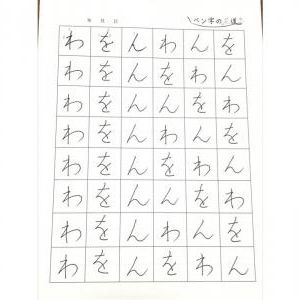 ペン字の道
わをんわんを
わをんをわん
わをんんをわ
わをんわんを
わをんをわん
わをんんをわ
わをんわんを
わをんをわん